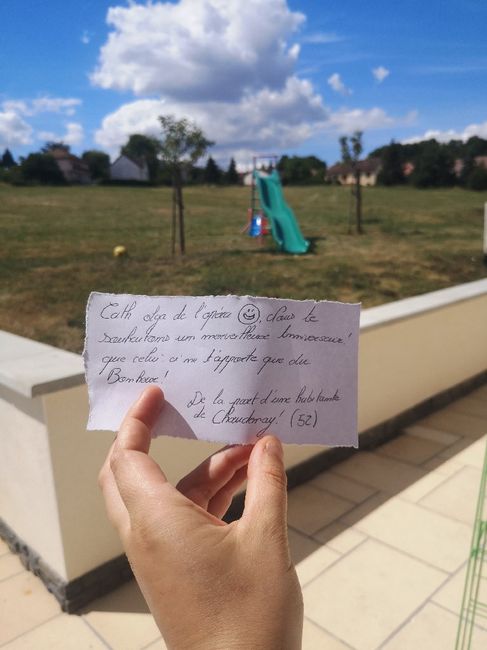 Cath olga de l'opéra ☺, dans te
souhaitons un merveilleux Anniversaire!
que celui-ci ne t'apporte que du
Bonheur!
De la part d'une habitante
de Chaudenay! (52)